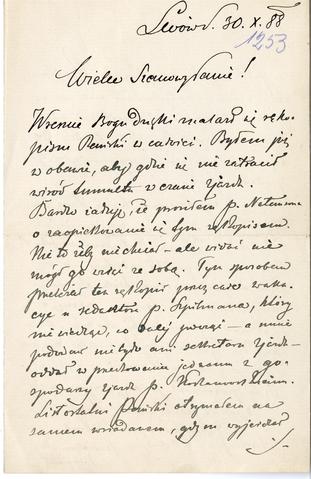 Lwów d. 30.X.88
1253
Wielce Szanowny Panie!
Wreszcie Bogu dzięki znalazł się ręko-
pism Pański w całości. Byłem już
w obawie, aby gdzie się nie zatracił
wśród tumultu w czasie zjazdu.
Bardzo żałuję, że prosiłem p.
o zaopiekowanie się tym rękopisem.
Nie to żeby nie chciał – ale widać nie
mógł go wziąć ze sobą. Tym sposobem
przeleżał ten rękopis przez czas waka-
cyj u redaktora p. Szpilmana, który
nie wiedząc, co dalej począć – a mnie
podówczas nie było ani sekretarza zjazdu –
oddał w przechowanie jednemu z go-
spodarzy zjazdu p.
List ostatni Pański otrzymałem na
samem wsiadanem, gdym wyjeżdżał